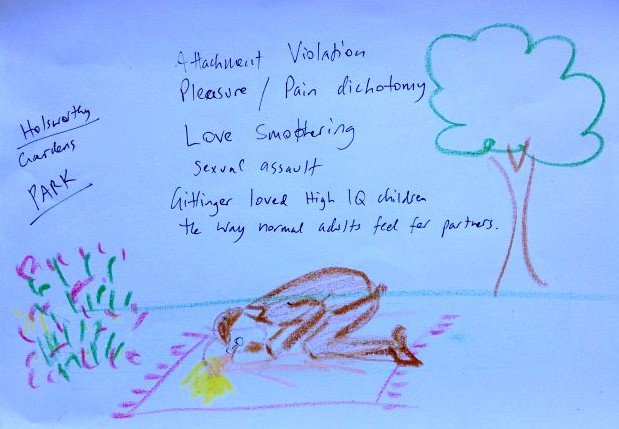 Attachment Violation
Pleasure / Pain dichotomy
Love Smothering
Sexual assault
Gittinger loved High IQ children
the way normal adults feel for partners.
Holsworthy
Gardens
PARK